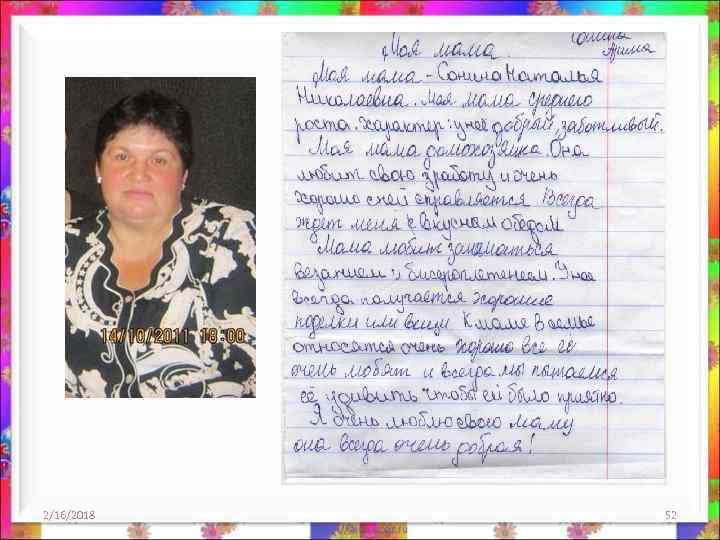 Сонина
Арина
Моя мама.
Моя мама - Сонина Наталья
Николаевна. Моя мама среднего
роста. Характер: у неё добрый, заботливый.
Моя мама домохозяйка. Она
любит свою работу и очень
хорошо с ней справляется Всегда
ждет меня с вкусным обедом
Мама любит заниматься
вязанием и бисероплетением. У нее
всегда получается хорошие
поделки или вещи К маме в семье
относятся очень хорошо все её
очень любят и всегда мы пытаемся
её удивить чтобы ей было приятно.
Я очень люблю свою маму
она всегда очень добрая!
14/10/2011 18:00
2/16/2018
52